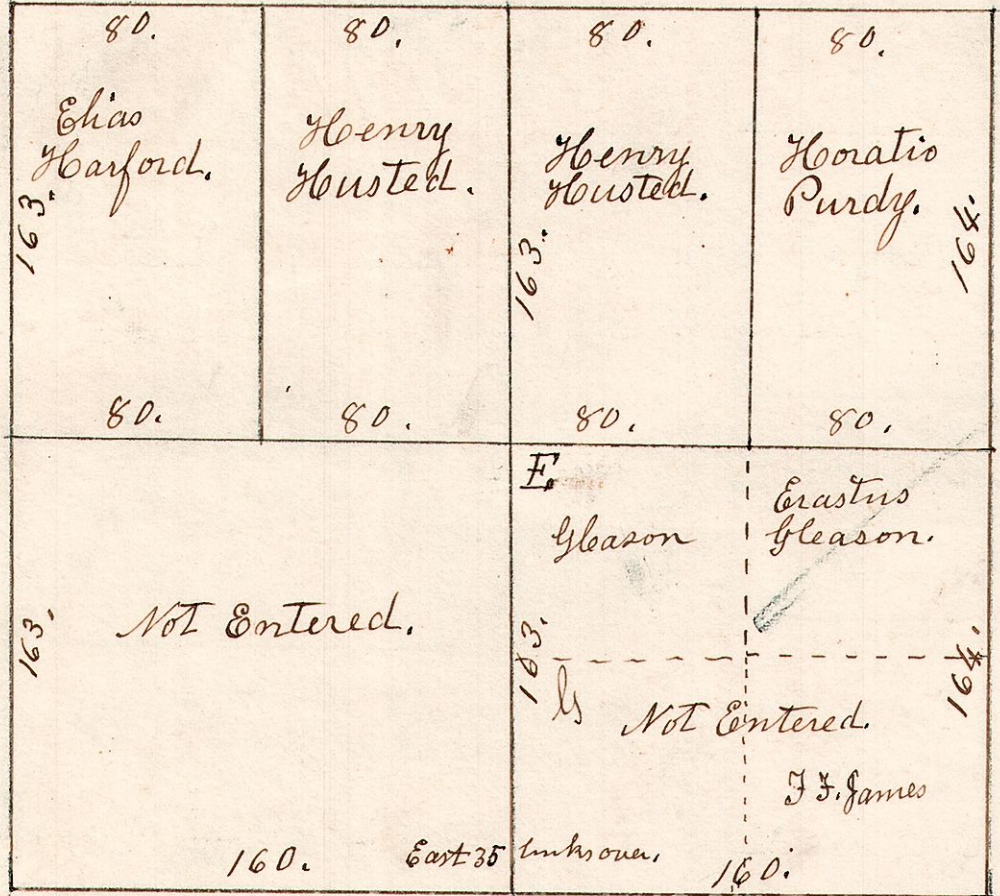 80.
80.
80.
80.
Elias
Harford.
Henry
Husted.
Henry
Husted.
Horatio
Purdy.
163.
163.
164.
80.
80.
80.
80.
E.
Gleason
Erastus
Gleason.
Not Entered.
163.
163.
164.
G
Not Entered.
F F. James
160.
East 35 links over.
160.